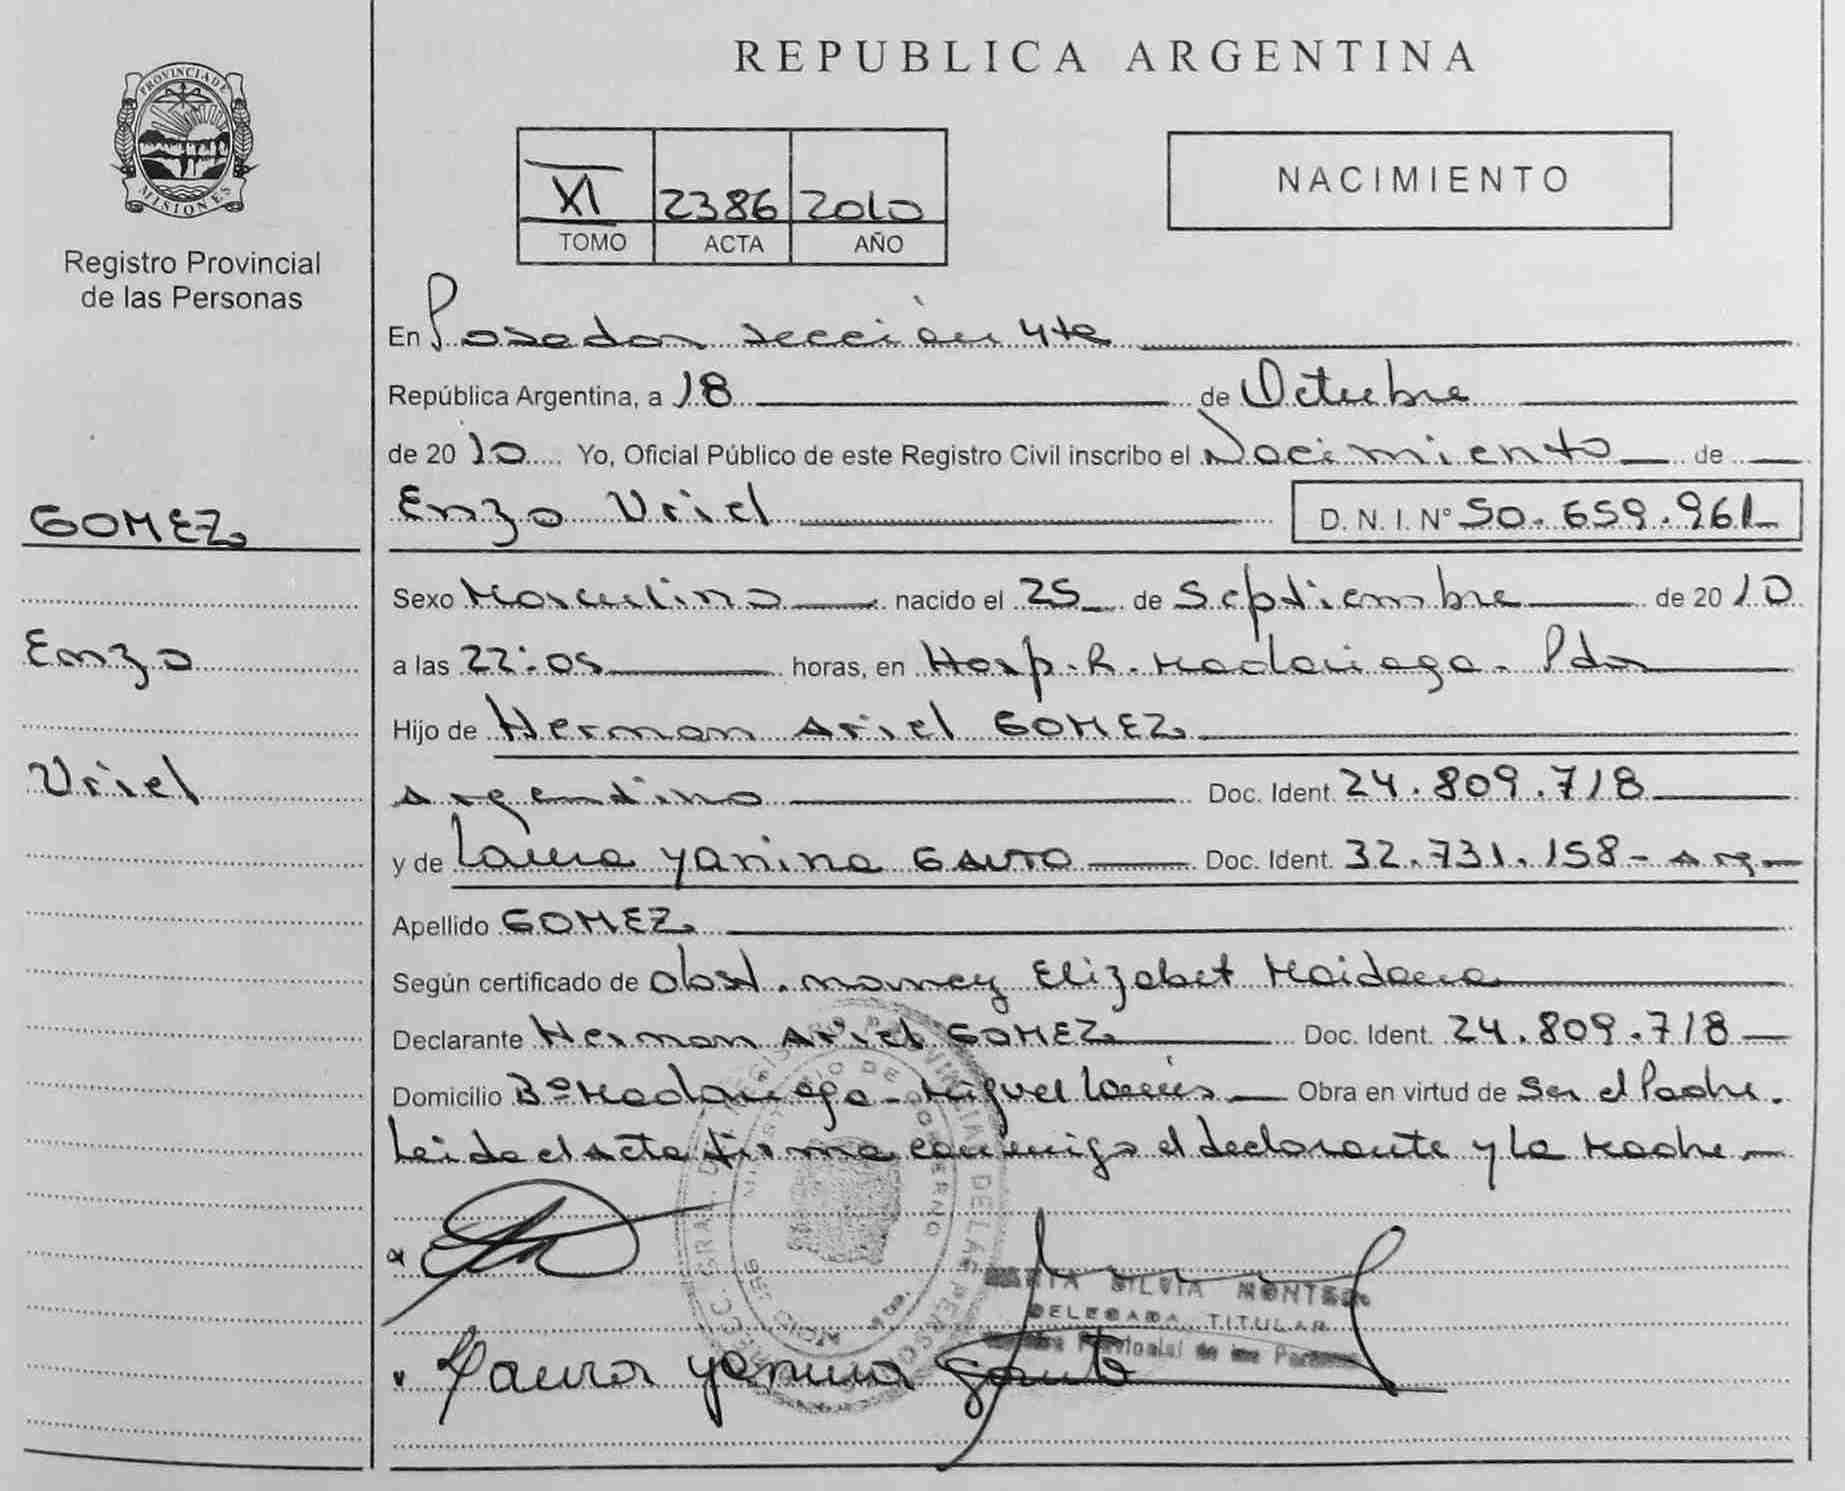 REPUBLICA ARGENTINA
PROVINCIA DE MISIONES
Registro Provincial
de las Personas
XI 2386 2010
TOMO ACTA AÑO
NACIMIENTO
En Posadas sección 4ta
República Argentina, a 18 de Octubre
de 2010 Yo, Oficial Público de este Registro Civil inscribo el Nacimiento de
GOMEZ
Enzo Uriel D.N.I. Nº 50.659.961
Sexo Masculino nacido el 25 de Septiembre de 2010
Enzo
a las 22:05 horas, en Hosp. R. Madariaga. Pdas
Hijo de Herman Ariel GOMEZ
Uriel
Argentino Doc. Ident. 24.809.718
y de Laura Yanina GAUTO Doc. Ident. 32.731.158 - Arg
Apellido GOMEZ
Según certificado de obst. Nancy Elizabet Maidana
Declarante Herman Ariel GOMEZ Doc. Ident. 24.809.718
Domicilio Bº Madariaga - Miguel Lanús Obra en virtud de Ser el Padre.
Leida el Acta firma conmigo el declarante y la Madre
SILVIA MONTE
DELEGADA TITULAR
Provincial de las
Laura Yanina Gauto